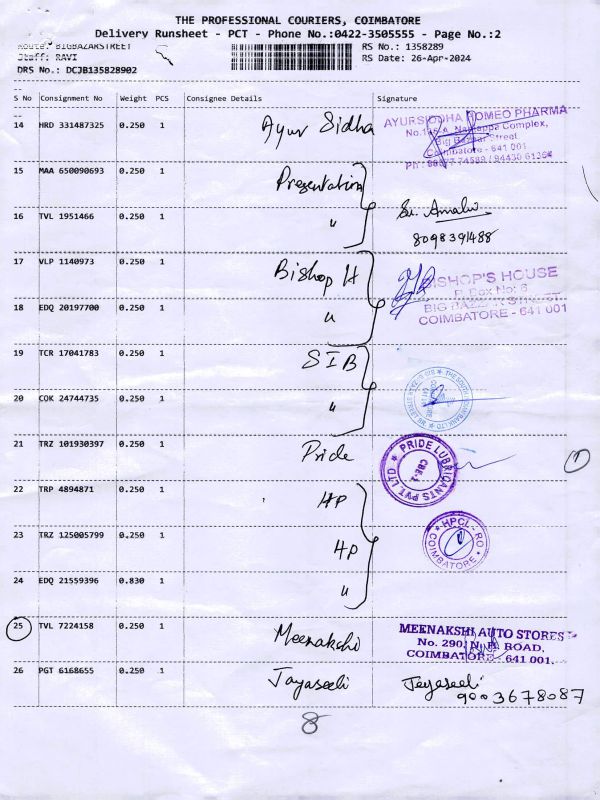 THE PROFESSIONAL COURIERS, COIMBATORE
Delivery Runsheet - PCT - Phone No.:0422-3505555 - Page No.:2
Route: BIGBAZARSTREET
RS No.: 1358289
Staff: RAVI
RS Date: 26-Apr-2024
DRS No.: DCJB135828902
S No Consignment No Weight PCS Consignee Details Signature
14 HRD 331487325 0.250 1 Ayur Sidha
AYURSIDDHA HOMEO PHARMA
Complex,
Big Bazaar Street
Coimbatore - 641 001
15 MAA 650090693 0.250 1 Presentation
16 TVL 1951466 0.250 1 "
Sr. Amala
8098391488
17 VLP 1140973 0.250 1 Bishop H
BISHOP'S HOUSE
P. Box No: 6
BIG BAZAAR STREET
COIMBATORE - 641 001
18 EDQ 20197700 0.250 1 "
19 TCR 17041783 0.250 1 SIB
20 COK 24744735 0.250 1 "
21 TRZ 101930397 0.250 1 Pride
PRIDE LUBRICANTS PVT LTD
CBE-1
1
22 TRP 4894871 0.250 1 HP
23 TRZ 125005799 0.250 1 HP
HPCL-RO
COIMBATORE
24 EDQ 21559396 0.830 1 "
25 TVL 7224158 0.250 1 Meenakshi
MEENAKSHI AUTO STORES
No. 290, N. H. ROAD,
COIMBATORE - 641 001.
26 PGT 6168655 0.250 1 Jayaseeli
Jeyaseeli
9003678087
8